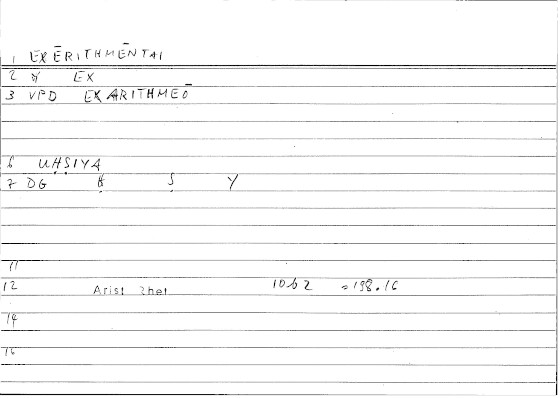 1 EXĒRITHMĒNTAI
2 EX
3 VPD EXARITHMEŌ
6 UḤṢIYA
7 DG Ḥ Ṣ Y
11
12 Arist Rhet 10b2 =198.16
14
15